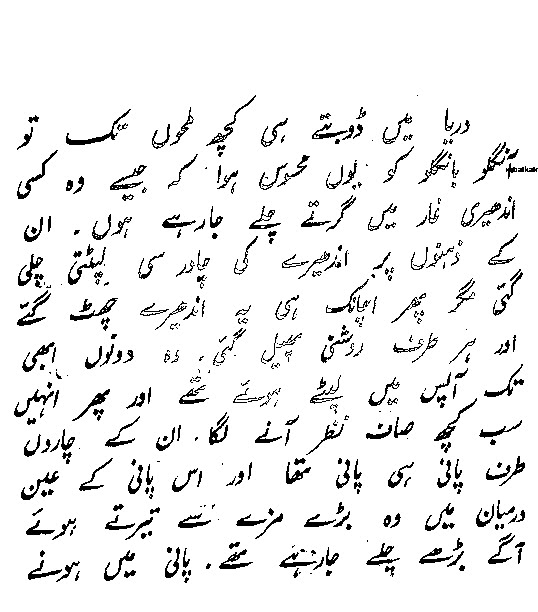 دریا میں ڈوبتے ہی کچھ لمحوں تک تو
آنگلو بانگلو کو یوں محسوس ہوا کہ جیسے وہ کسی
اندھیری غار میں گرتے چلے جارہے ہوں۔ ان
کے ذہنوں پر اندھیرے کی چادر سی لپٹتی چلی
گئی مگر پھر اچانک ہی یہ اندھیرے چھٹ گئے
اور ہر طرف روشنی پھیل گئی۔ وہ دونوں ابھی
تک آپس میں لپٹے ہوئے تھے اور پھر انہیں
سب کچھ صاف نظر آنے لگا۔ ان کے چاروں
طرف پانی ہی پانی تھا اور اس پانی کے عین
درمیان میں وہ بڑے مزے سے تیرتے ہوئے
آگے بڑھے چلے جارہے تھے۔ پانی میں ہونے